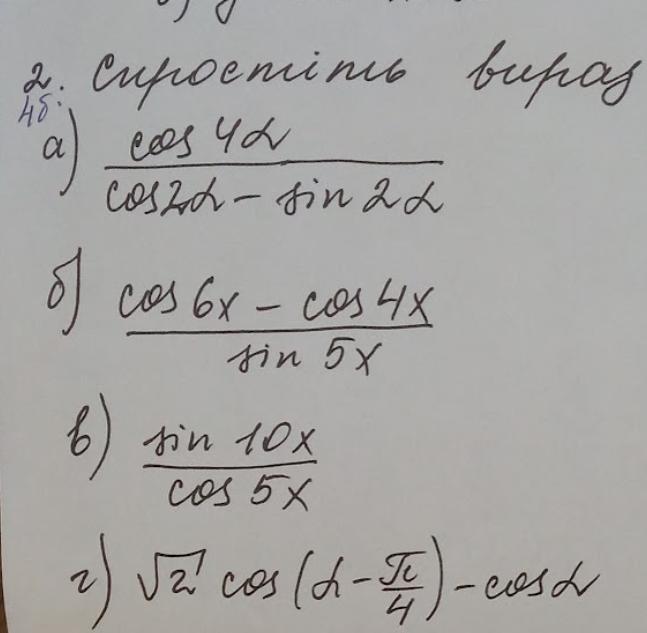 2. Спростіть вираз
4б.
а) cos 4α / (cos 2α − sin 2α)
б) (cos 6x − cos 4x) / sin 5x
в) sin 10x / cos 5x
г) √2 cos (α − π/4) − cos α